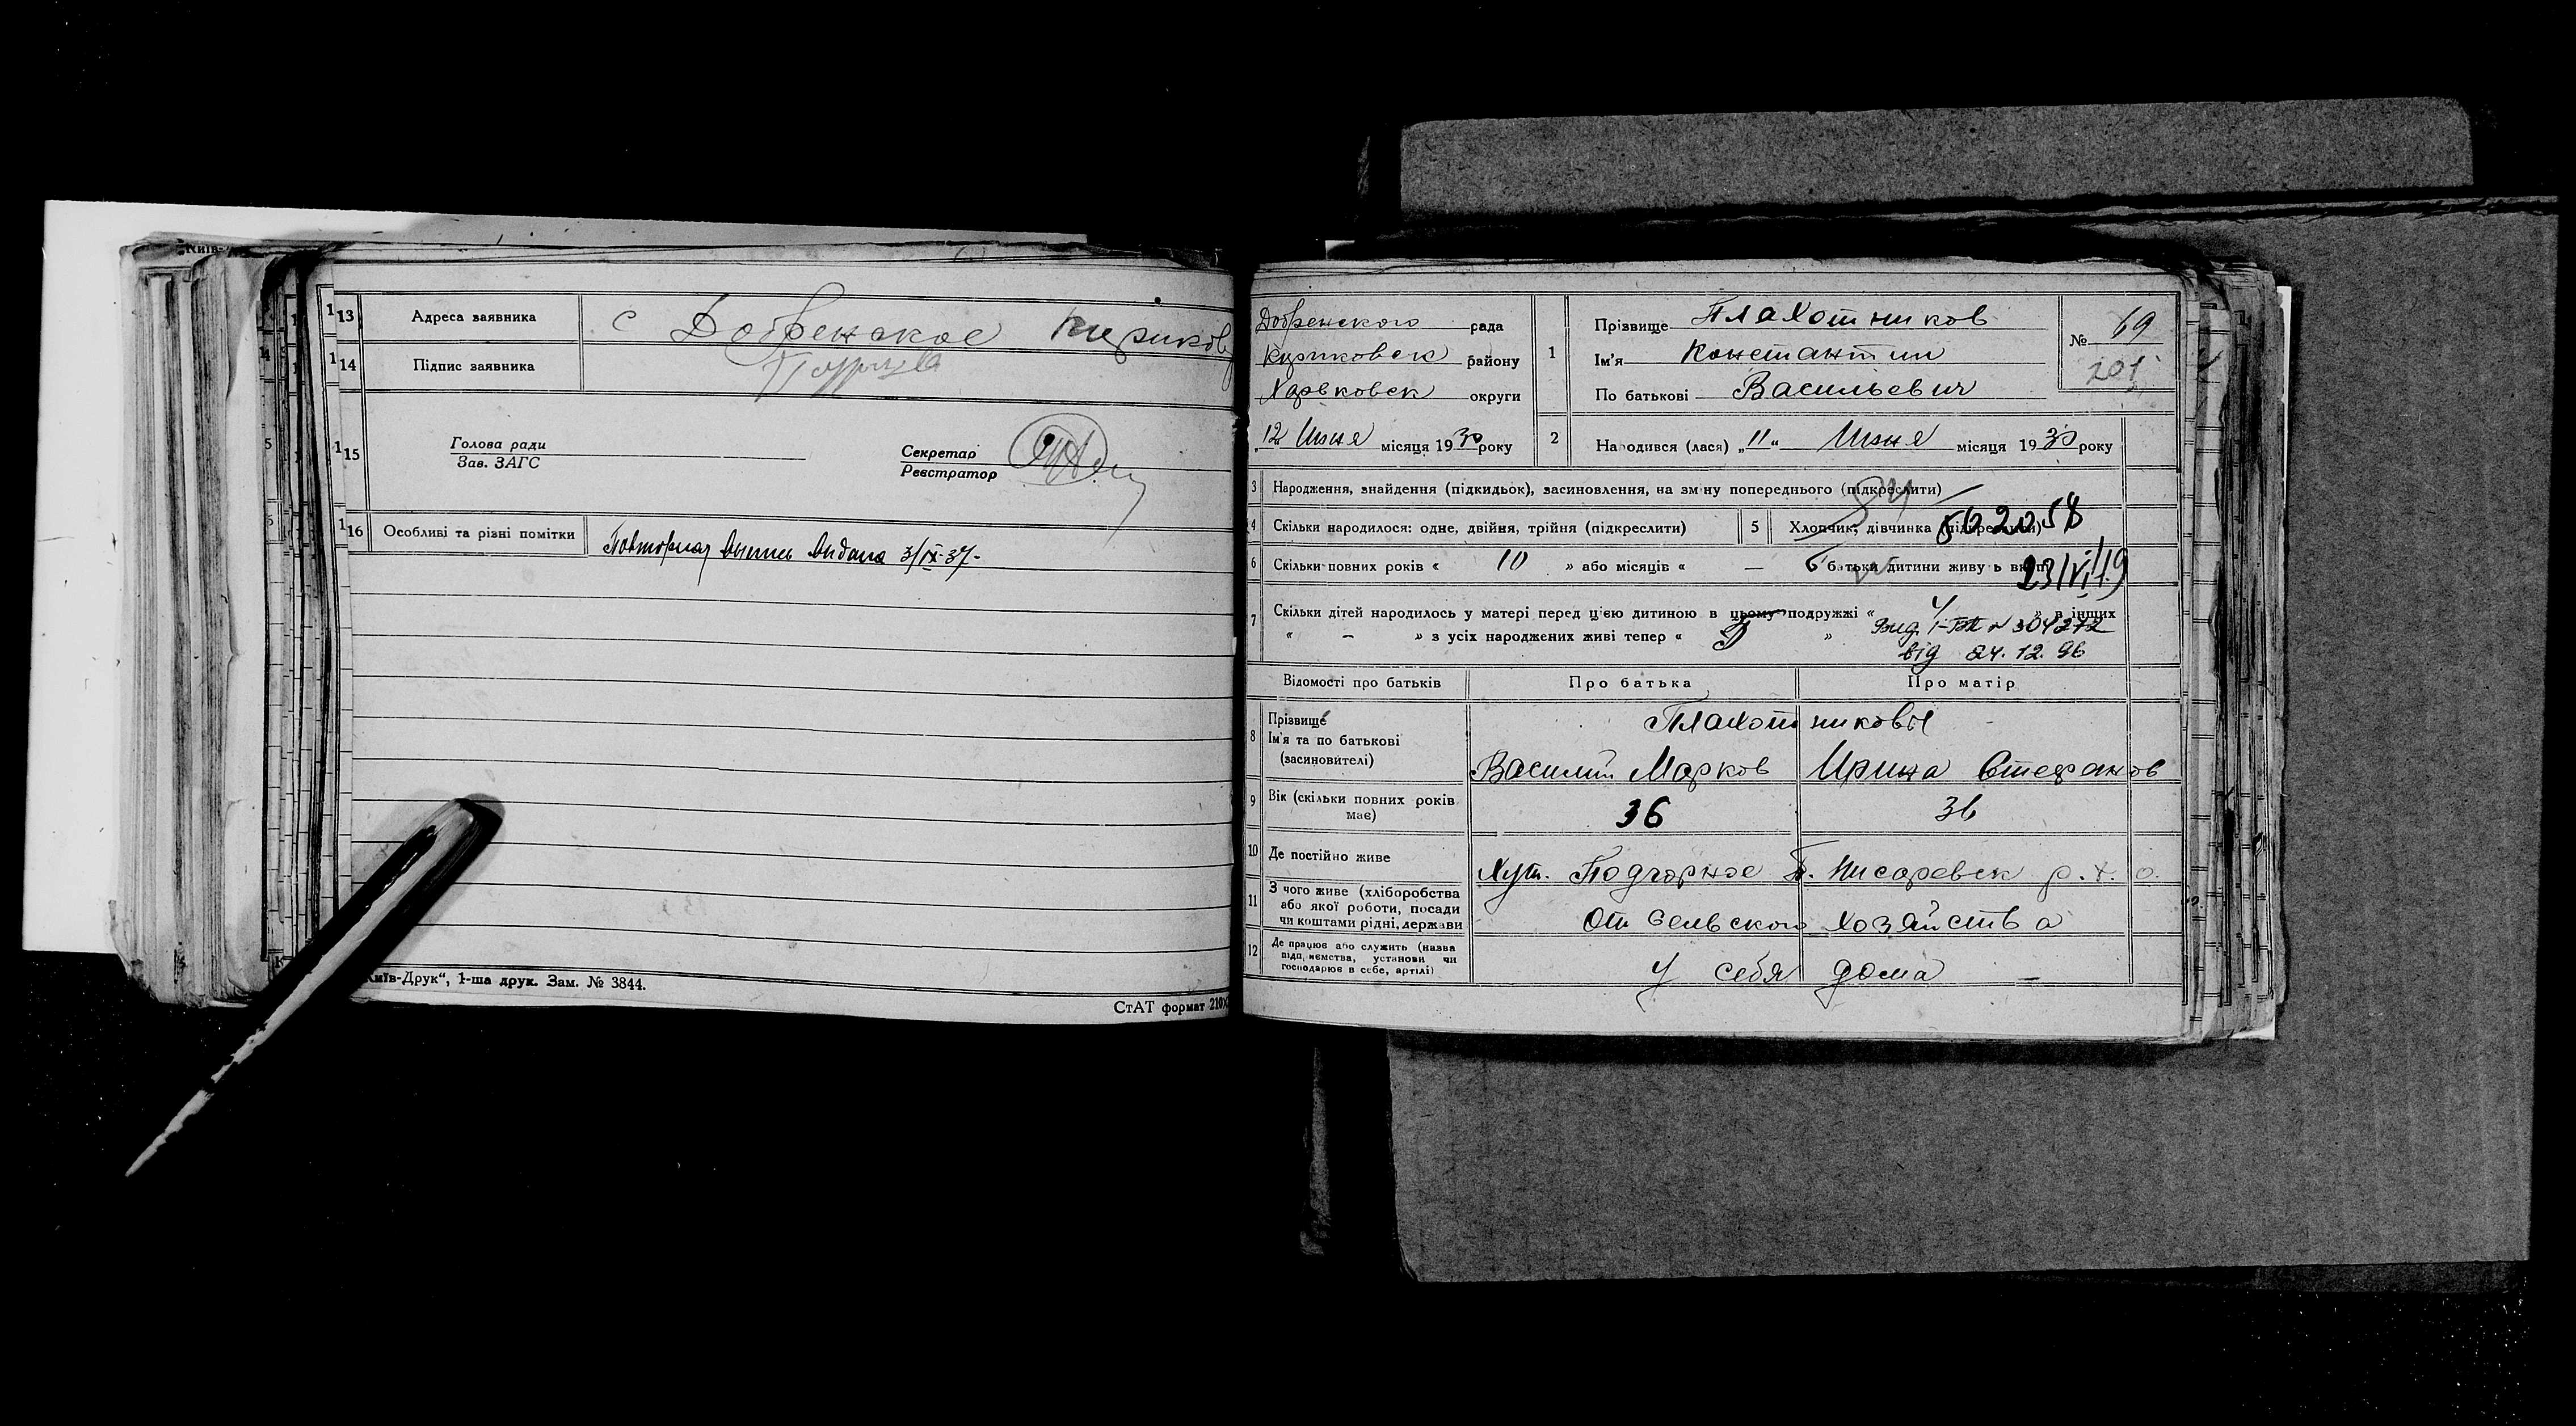 13 Адреса заявника с Добренское
14 Підпис заявника
15 Голова ради
Зав. ЗАГС
Секретар
Реєстратор
16 Особливі та різні помітки Повторная выпись выдана 3/IX-37-
Київ-Друк“, 1-ша друк. Зам. № 3844.
СтАТ формат 210X
Добренского рада
району
Харьковск округи
„12 Июня місяця 1930 року
1 Прізвище Плахотников
Ім'я Константин
По батькові Васильевич
№ 69
201
2 Народився (лася) „11“ Июня місяця 1930 року
3 Народження, знайдення (підкидьок), засиновлення, на зміну попереднього (підкреслити)
4 Скільки народилося: одне, двійня, трійня (підкреслити)
5 Хлопчик, дівчинка (підкреслити)
6 Скільки повних років « 10 » або місяців « — батьки дитини живуть вкупі
7 Скільки дітей народилось у матері перед цією дитиною в цьому подружжі « 4 » в інших
« - » з усіх народжених живі тепер « »
від 24. 12. 96
Відомості про батьків
Про батька
Про матір
8 Прізвище
Ім'я та по батькові
(засиновителі)
Плахотниковы
Василий Марков
Ирина Стефанов
9 Вік (скільки повних років має) 36 36
10 Де постійно живе Хут. Подгорное Б. Писаревск р. Х. о.
11 З чого живе (хліборобства
або якої роботи, посади
чи коштами рідні, держави
От сельского хозяйства
12 Де працює або служить (назва
підприємства, установи чи
господарює в себе, артілі)
у себя дома —